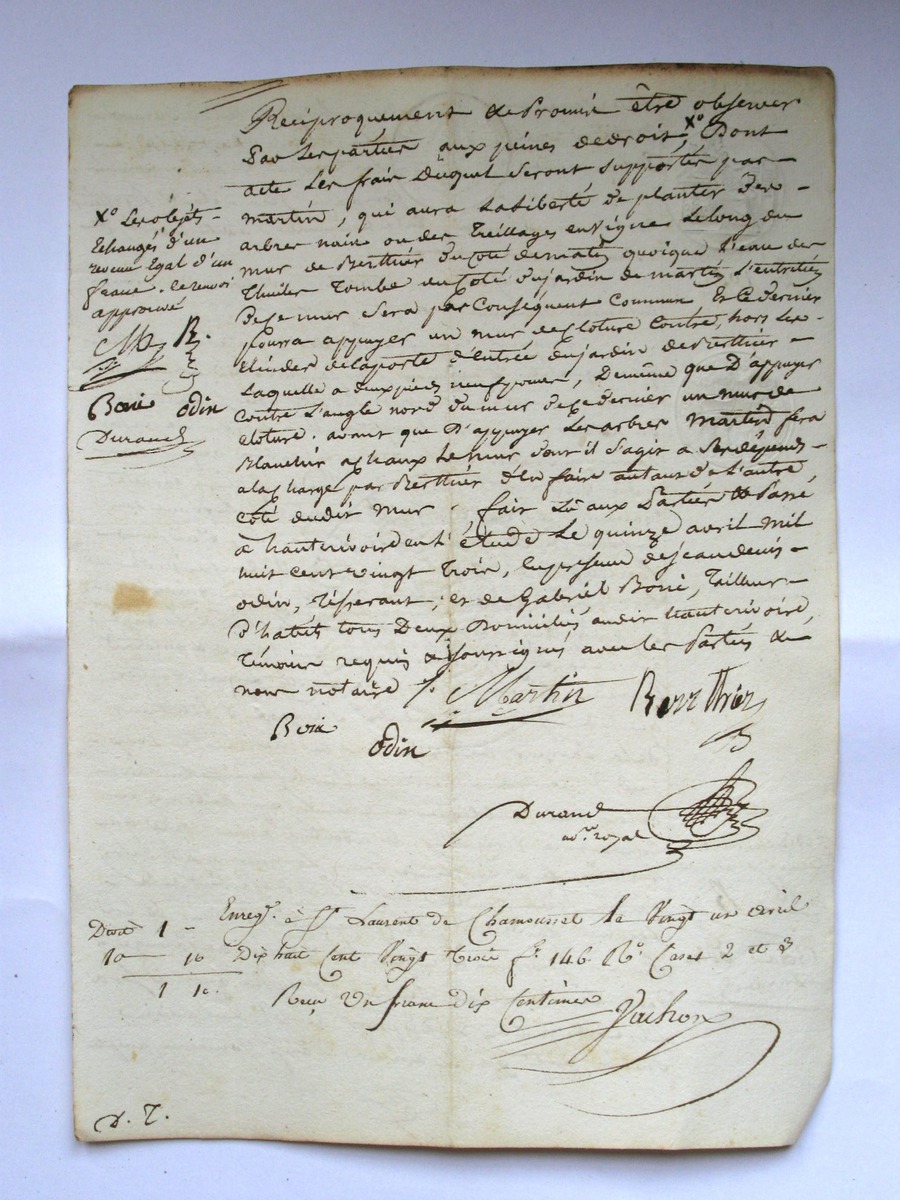 Reciproquement & Promis être observer
Par les parties aux peines de droit, Xº Dont
acte les frais Duquel seront supportés par
martin, qui aura la liberté de planter des
arbres nain ou des Treillages en vigne le long du
mur de Berthier du Coté de matin quoique l'eau des
Thuiles Tombe du Coté du jardin de martin, l'entretien
De ce mur sera par Conséquent Commun Et Ce dernier
pourra appuyer un mur de cloture Contre, hors les
de la porte d'entrée du jardin de Berthier
Laquelle a deux pieds neuf pouces, De même que D'appuyer
Contre l'angle nord du mur de Ce dernier un mur de
cloture. avant que D'appuyer les arbres martin fera
Blanchir a chaux le mur dont il s'agit a ses dépends
a la charge par Berthier d'En faire autant de l'autre
côté dudit mur. fait Lû aux Parties & Passé
a hauterivoire en l'étude Le quinze avril mil
huit cent vingt trois, En présence de jean denis
odin, Tisserant, et de Gabriel Boni, Tailleur
D'habits tous Deux Domiciliés audit hauterivoire,
Témoins requis & soussignés avec les Parties &
nous notaire
Martin Berthier
Boni odin
Durand
no.re royal
Xº Les objets
Echangés d'un
revenu Egal d'un
franc. ce renvoi
approuvé
M B.
Boni odin
Durand
Enreg. à St Laurent de Chamousset le Vingt un avril
Dix huit Cent Vingt Trois fº 146 Rº Cases 2 et 3
Reçu Un franc dix Centimes Vachon
Droit 1
10 10
1 10.
D. T.